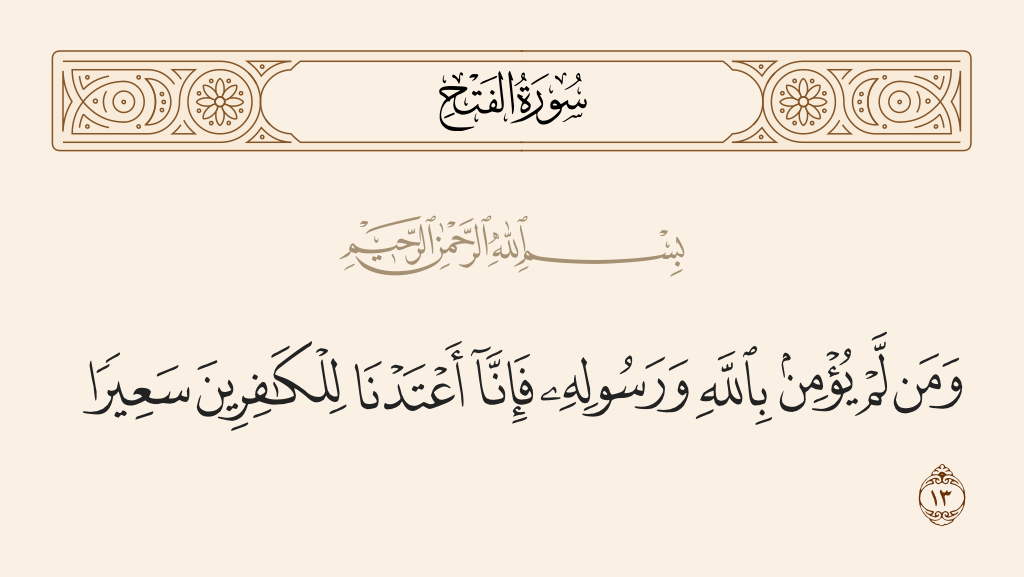 سُورَةُ الفَتْحِ
بِسْمِ ٱللَّهِ ٱلرَّحْمَٰنِ ٱلرَّحِيمِ
وَمَن لَّمْ يُؤْمِنۢ بِٱللَّهِ وَرَسُولِهِۦ فَإِنَّآ أَعْتَدْنَا لِلْكَٰفِرِينَ سَعِيرًا
١٣